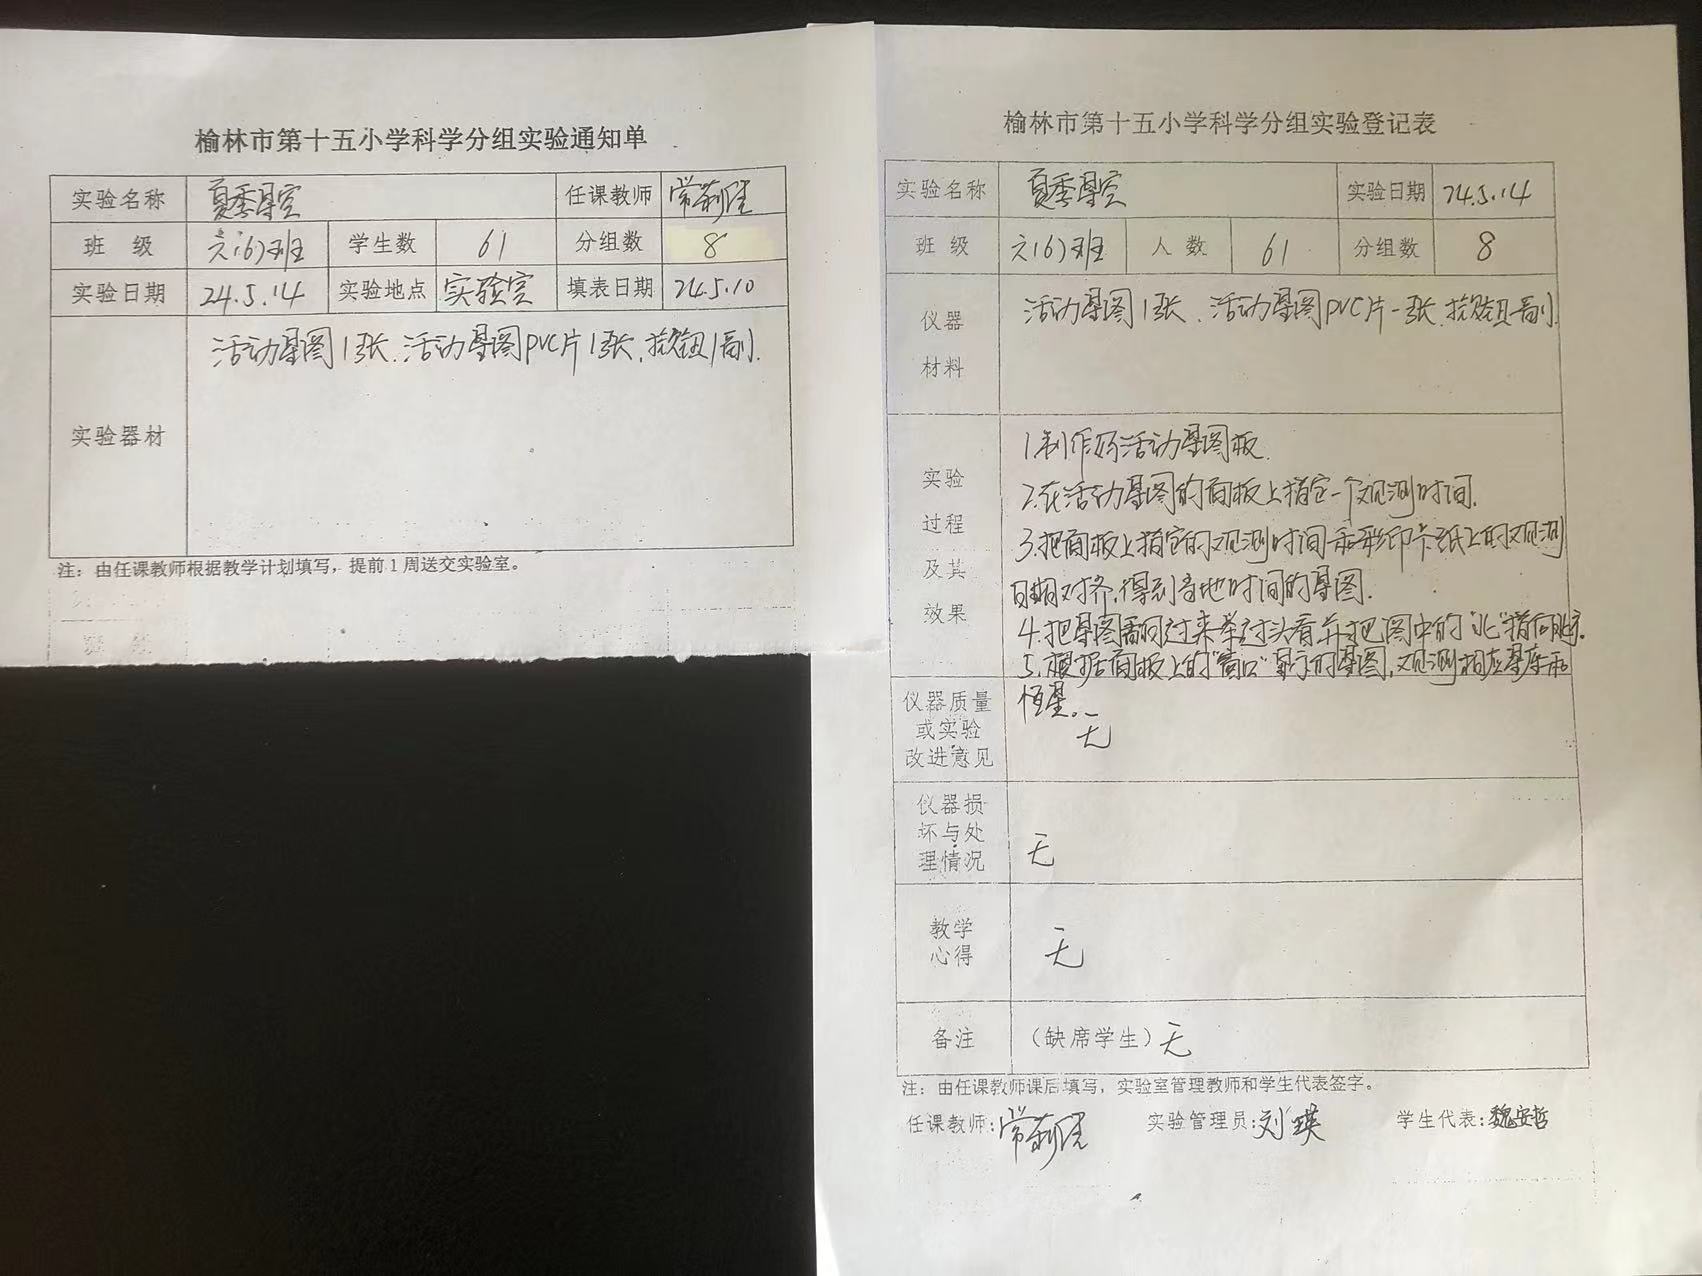 榆林市第十五小学科学分组实验通知单
实验名称 夏季星空 任课教师
班 级 六(6)班 学生数 61 分组数 8
实验日期 24.5.14 实验地点 实验室 填表日期 24.5.10
实验器材 活动星图1张、活动星图PVC片1张,按钮1副.
注：由任课教师根据教学计划填写，提前1周送交实验室。
榆林市第十五小学科学分组实验登记表
实验名称 夏季星空 实验日期 24.5.14
班 级 六(6)班 人 数 61 分组数 8
仪器材料 活动星图1张、活动星图PVC片一张,按钮一副.
实验过程及其效果
1.制作好活动星图板.
2.在活动星图的面板上指定一个观测时间.
3.把面板上指定的观测时间和彩印卡纸上的观测
日期对齐,得到当地时间的星图.
4.把星图需问过来举过头看并把图中的"北"指向北方.
5.根据面板上的"窗口"显示的星图,观测相应星座和
恒星。
仪器质量或实验改进意见 无
仪器损坏与处理情况 无
教学心得 无
备注 （缺席学生）无
注：由任课教师课后填写，实验室管理教师和学生代表签字。
任课教师: 实验管理员:刘瑛 学生代表:魏安哲